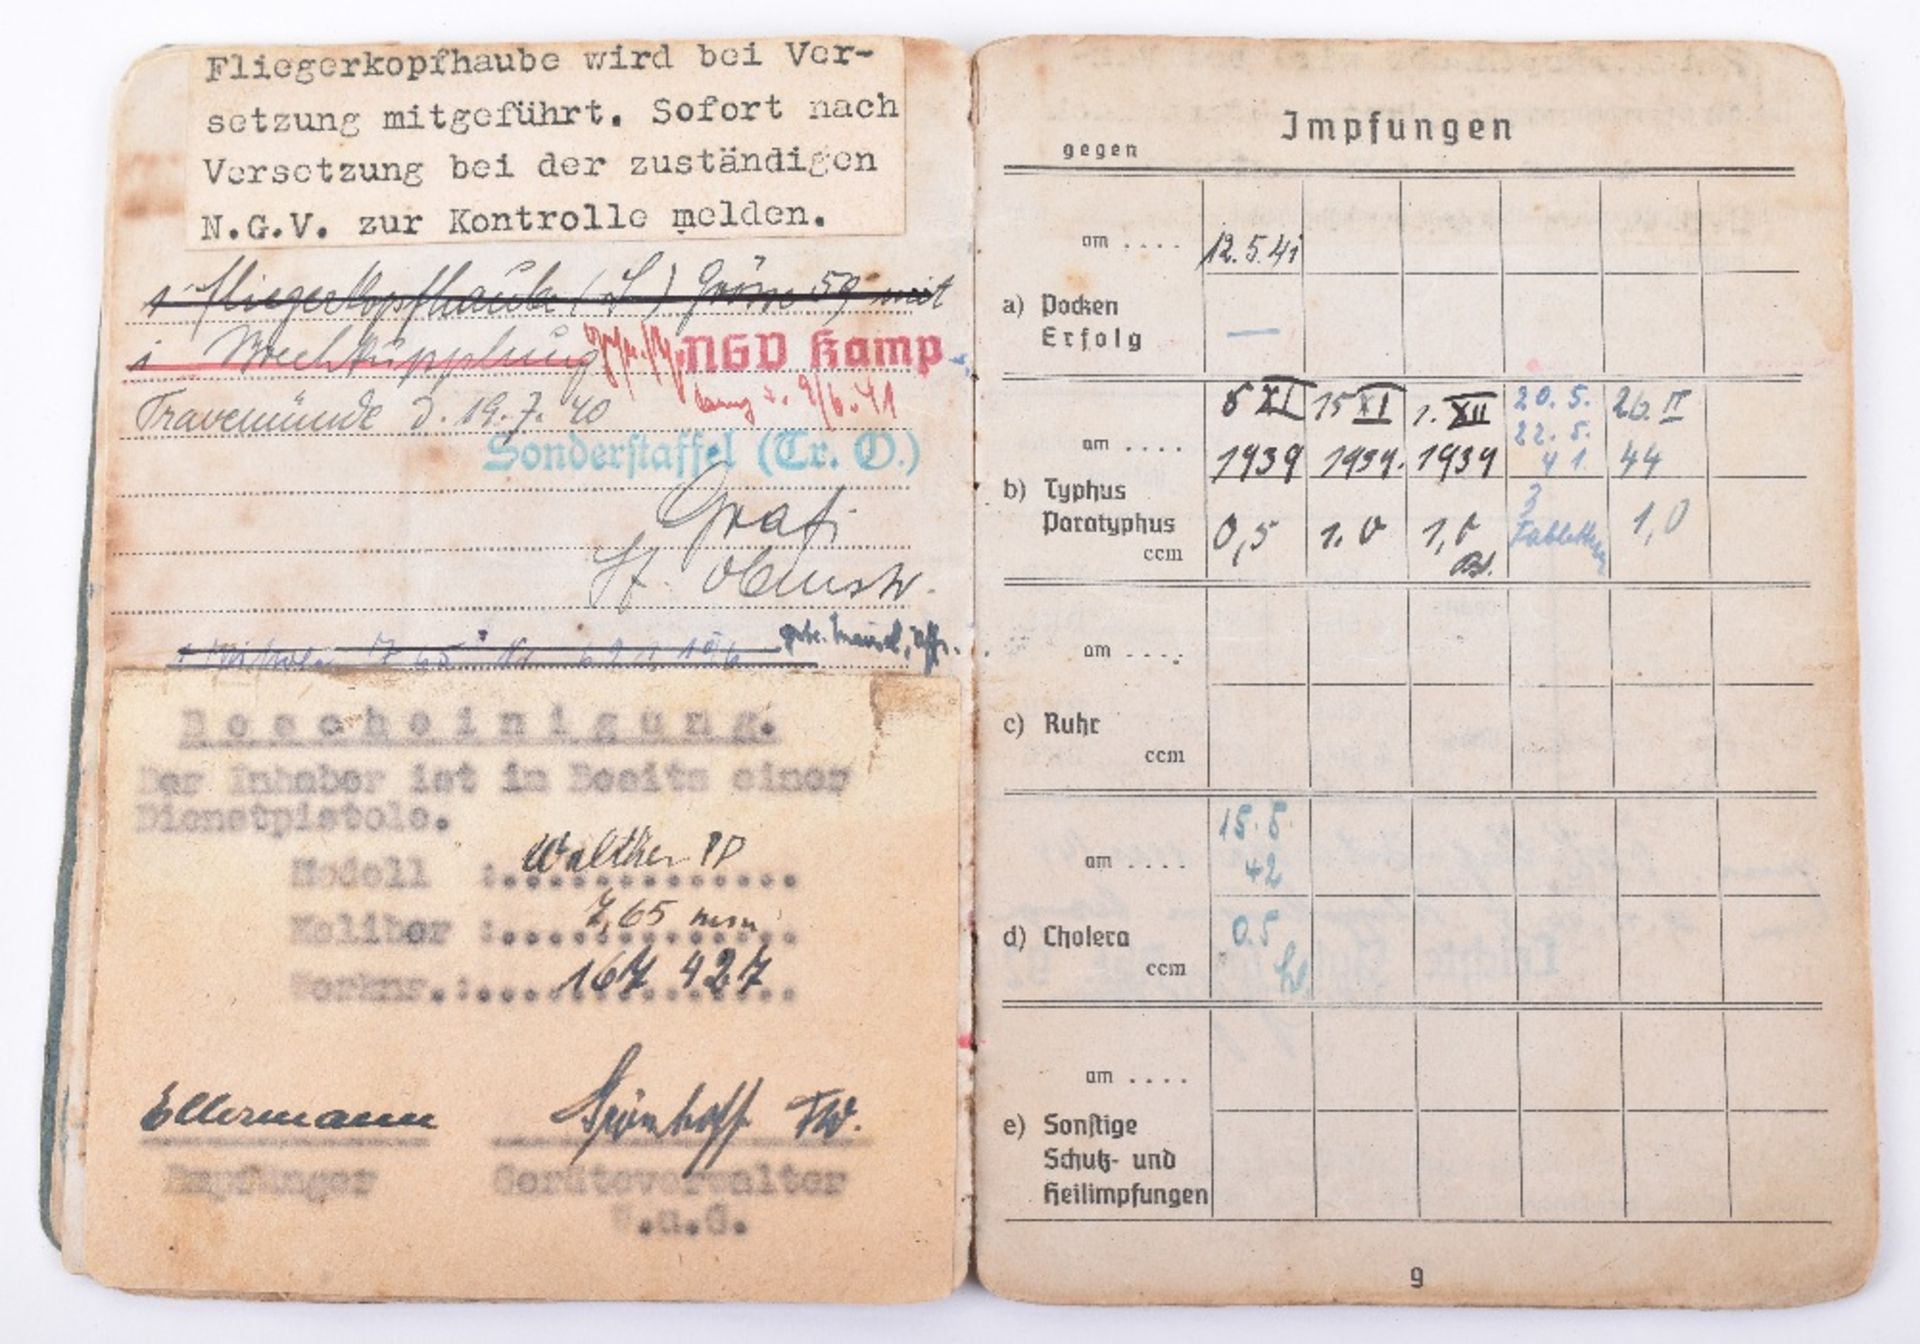 Fliegerkopfhaube wird bei Ver-
setzung mitgeführt. Sofort nach
Versetzung bei der zuständigen
N.G.V. zur Kontrolle melden.
1 Fliegerkopfhaube (L) Grösse 59 mit
1 NGV Kamp
Travemünde d. 19.7.40 9/6.41
Sonderstaffel (Tr. O.)
Graf
1 Pistole 7,65 Nr.
Bescheinigung.
Der Inhaber ist im Besitz einer
Dienstpistole.
Modell : Walther PP
Kaliber : 7,65 mm
Werknr. : 167 427
Ellermann Grönhoff Fw.
Empfänger Geräteverwalter
W.u.G.
Impfungen
gegen
am .... 12.5.41
a) Pocken
Erfolg —
6 XI 15 XI 1. XII 20. 5. 26 II
22. 5.
am .... 1939 1939. 1939 41 44
b) Typhus
Paratyphus
ccm 0,5 1.0 1,0 3 Tabletten 1,0
am ....
c) Ruhr
ccm
15. 5.
am .... 42
d) Cholera 0.5
ccm
am ....
e) Sonstige
Schutz- und
Heilimpfungen
9